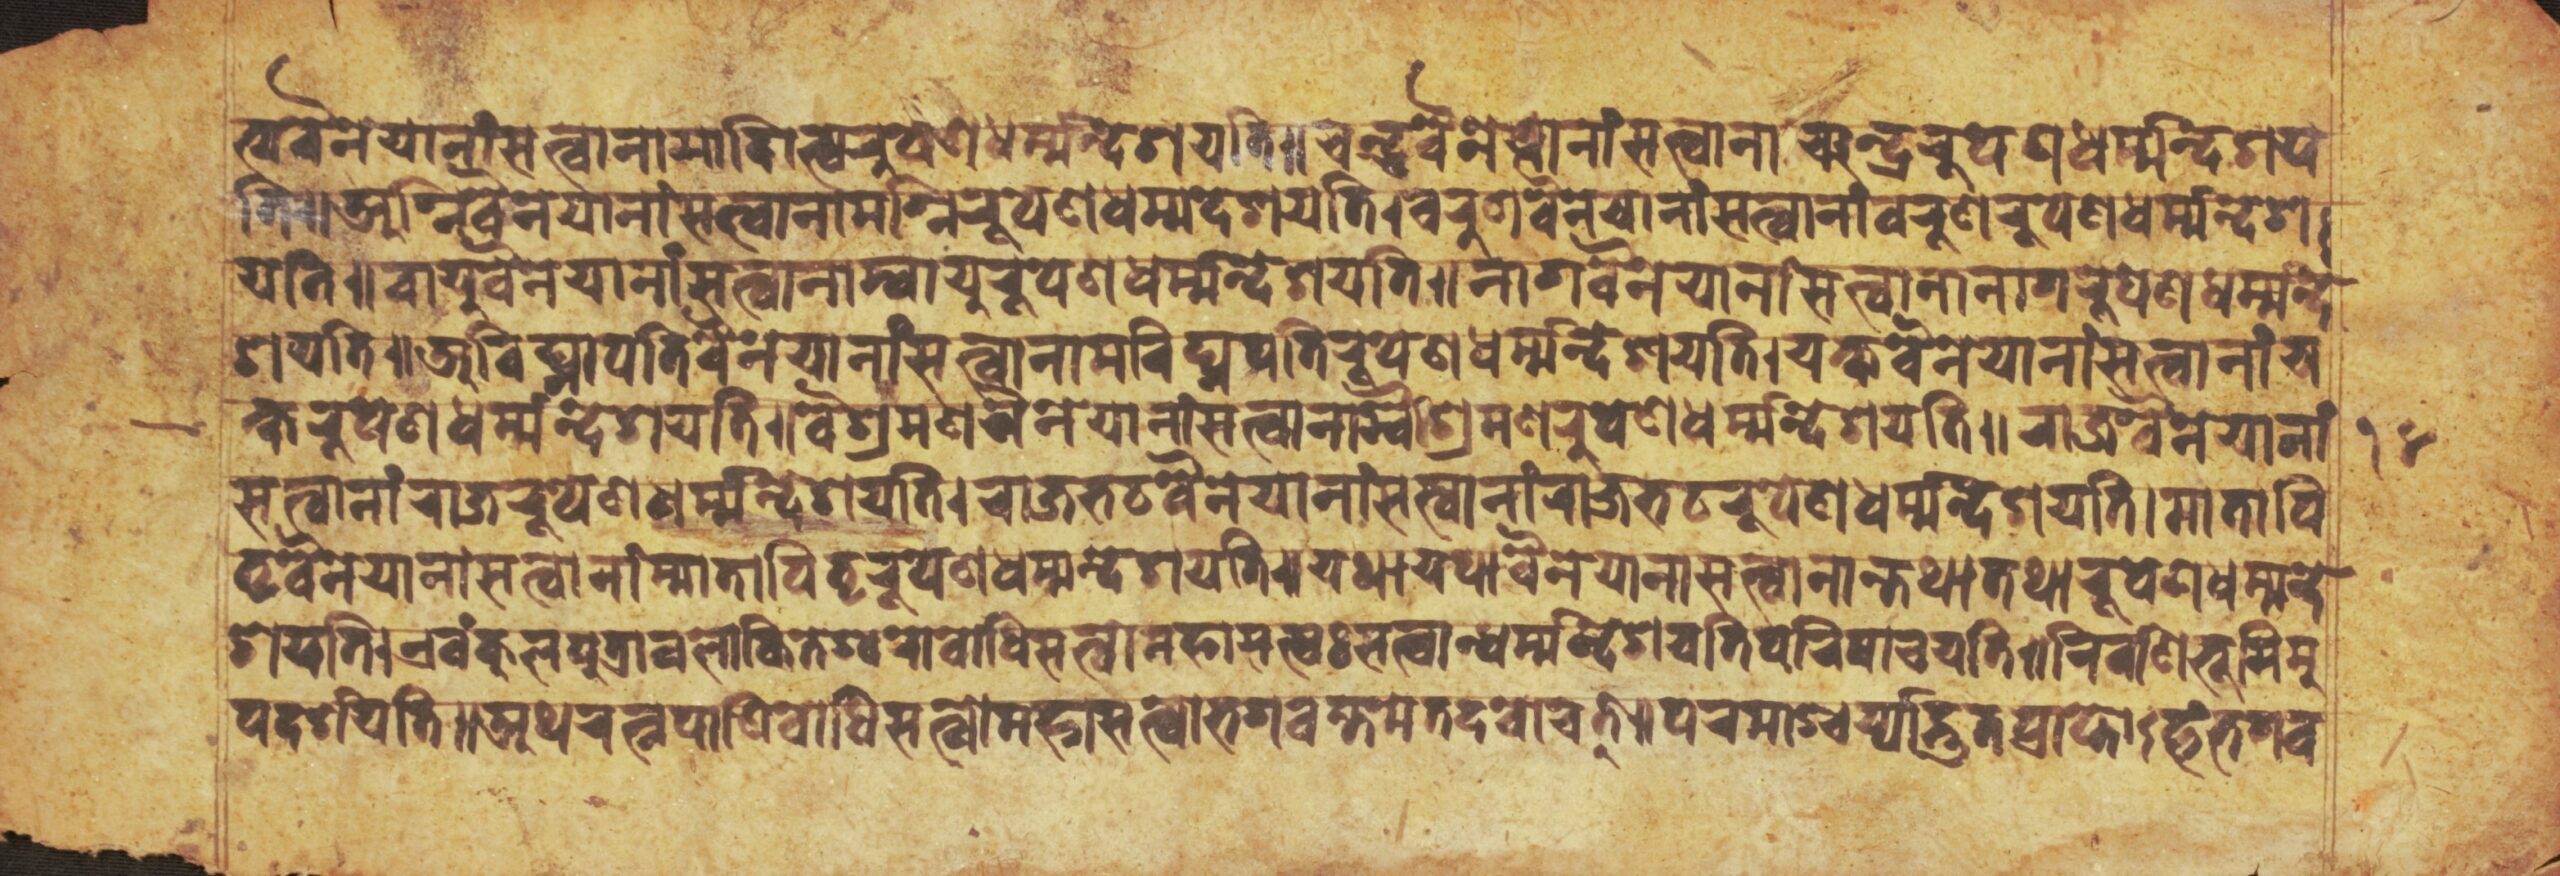 त्यवैनेयानांसत्वानामादित्यरुपेणधर्म्मन्देशयति॥चन्द्रवैनेयानांसत्वानाञ्चन्द्ररुपेणधर्म्मन्देशय
ति॥अग्निवैनेयानांसत्वानामग्निरूपेणधर्म्मदेशयति।वरुणवैनेयानांसत्वानांवरूणरूपेणधर्म्मन्देश
यति॥वायुवैनेयानांसत्वानाम्वायुरूपेणधर्म्मन्देशयति॥नागवैनेयानांसत्वानानागरूपेणधर्म्मन्दे
शयति॥अविघ्नापतिवैनेयानांसत्वानामविघ्नपतिरूपेणधर्म्मन्देशयति।यक्षवैनेयानांसत्वानांय
क्षरूपेणधर्म्मन्देशयति॥वैश्रमणवैनेयानांसत्वानाम्वैश्रमणरुपेणधर्म्मन्देशयति॥राजवैनेयानां
सत्वानांराजरूपेणधर्म्मन्देशयति।राजभटवैनेयानांसत्वानांराजभटरूपेणधर्म्मन्देशयति।मातापि
तृवैनेयानांसत्वानांम्मातापितृरूपेणधर्म्मन्देशयति॥यथायथावैनेयानासत्वानान्तथातथारूपेणधर्म्मन्दे
शयति।एवंकुलपुत्रावलोकितेश्वरोबोधिसत्वोमहासत्वःसत्वान्धर्म्मन्देशयतिपरिपाचयति॥निर्वाणभूमिमु
पदर्शयति॥अथरत्नपाणिबोधिसत्वोमहासत्वोभगवन्तमेतदवोचत्॥परमाश्चर्य्याद्भुतप्राप्तोऽहंभगव